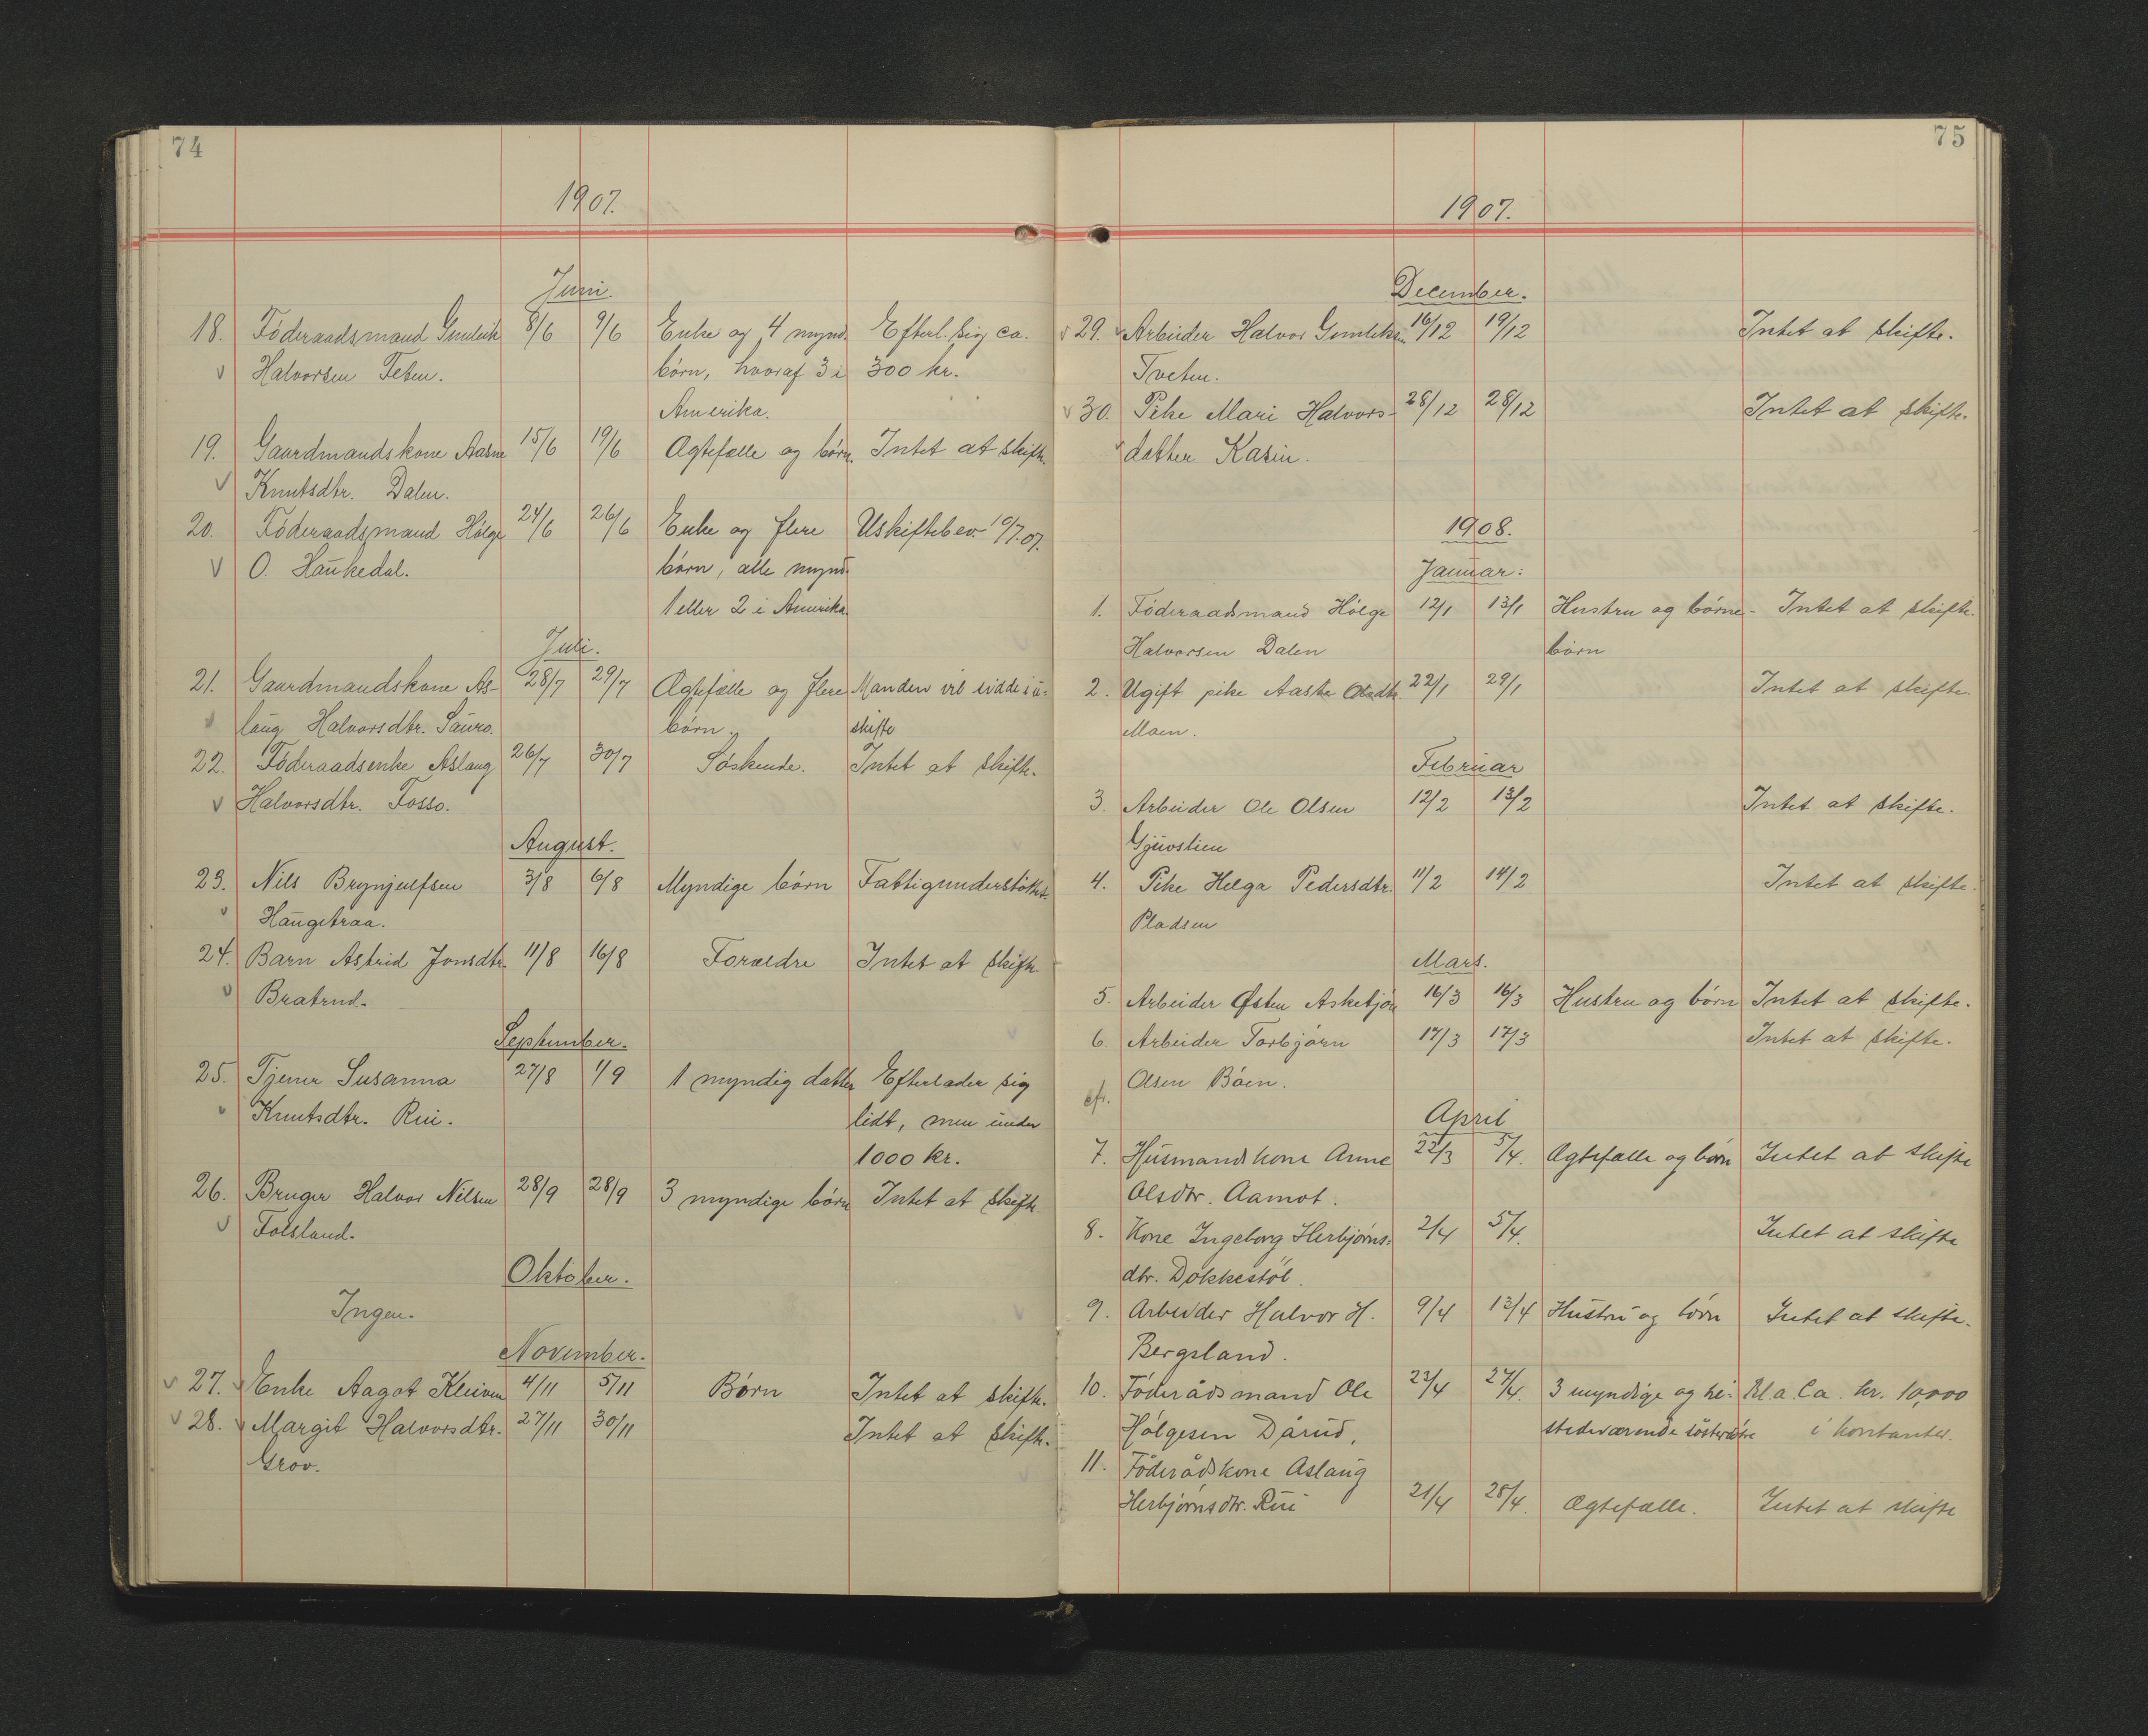 74
1907.
Juni.
18. Föderaadsmand Gunleik 8/6 9/6 Enke og 4 mynd. Efterl. sig ca.
v Halvorsen Teten. börn, hvoraf 3 i 300 kr.
Amerika.
19. Gaardmandskone Aasne 15/6 19/6 Ægtefælle og börn. Intet at skifte.
v Knutsdtr. Dalen.
20. Föderaadsmand Hölge 24/6 26/6 Enke og flere Uskiftebev. 10/7.07.
v O. Haukedal. börn, alle mynd.
1 eller 2 i Amerika
Juli.
21. Gaardmandskone As- 28/7 29/7 Ægtefælle og flere Manden vil sidde i u-
v laug Halvorsdtr. Sauro. börn. skifte
22. Föderaadsenke Aslaug 26/7 30/7 Söskende. Intet at skifte.
v Halvorsdtr. Fosso.
August.
23. Nils Brynjulfsen 3/8 6/8 Myndige börn Fattigunderstöttet.
v Haugetraa.
24. Barn Astrid Jonsdtr. 11/8 16/8 Forældre Intet at skifte.
v Bratrud.
September.
25. Tjener Susanna 27/8 1/9 1 myndig datter Efterlader sig
v Knutsdtr. Rui. lidt, men under
1000 kr.
26. Bruger Halvor Nilsen 28/9 28/9 3 myndige börn Intet at skifte.
v Folsland.
Oktober.
Ingen.
November.
v 27. v Enke Aagot Kleiven 4/11 5/11 Börn Intet at skifte.
v 28. v Margit Halvorsdtr. 27/11 30/11 Intet at skifte.
Grov.
75
1907.
December.
v 29. v Arbeider Halvor Gunleiksn 16/12 19/12 Intet at skifte.
Tveten.
v 30. Pike Mari Halvors- 28/12 28/12 Intet at skifte.
v datter Kasin.
1908.
Januar:
1. Föderaadsmand Hölge 12/1 13/1 Hustru og börne- Intet at skifte.
Halvorsen Dalen börn
2. Ugift pike Aaste Olsdtr. 22/1 29/1 Intet at skifte.
Moen.
Februar
3. Arbeider Ole Olsen 12/2 13/2 Intet at skifte.
Gjuvslien
4. Pike Helga Pedersdtr. 11/2 14/2 Intet at skifte.
Pladsen
Mars.
5. Arbeider Østen Asketjön 16/3 16/3 Hustru og börn Intet at skifte.
6. Arbeider Torbjörn 17/3 17/3 Intet at skifte.
Olsen Böen.
cfr.
April
7. Husmandskone Anne 22/3 5/4. Ægtefælle og börn Intet at skifte
Olsdtr. Aamot.
8. Kone Ingeborg Herbjörns- 2/4 5/4. Intet at skifte
dtr. Dokkestöl.
9. Arbeider Halvor H. 9/4 12/4 Hustru og börn Intet at skifte.
Bergsland.
10. Föderådsmand Ole 23/4 27/4. 3 myndige og hi- Bl. a. Ca. kr. 10,000
Hölgesen Dårud, stedeværende i kontanter.
11. Föderådskone Aslaug
Herbjörnsdtr. Rui 21/4 28/4. Ægtefælle. Intet at skifte